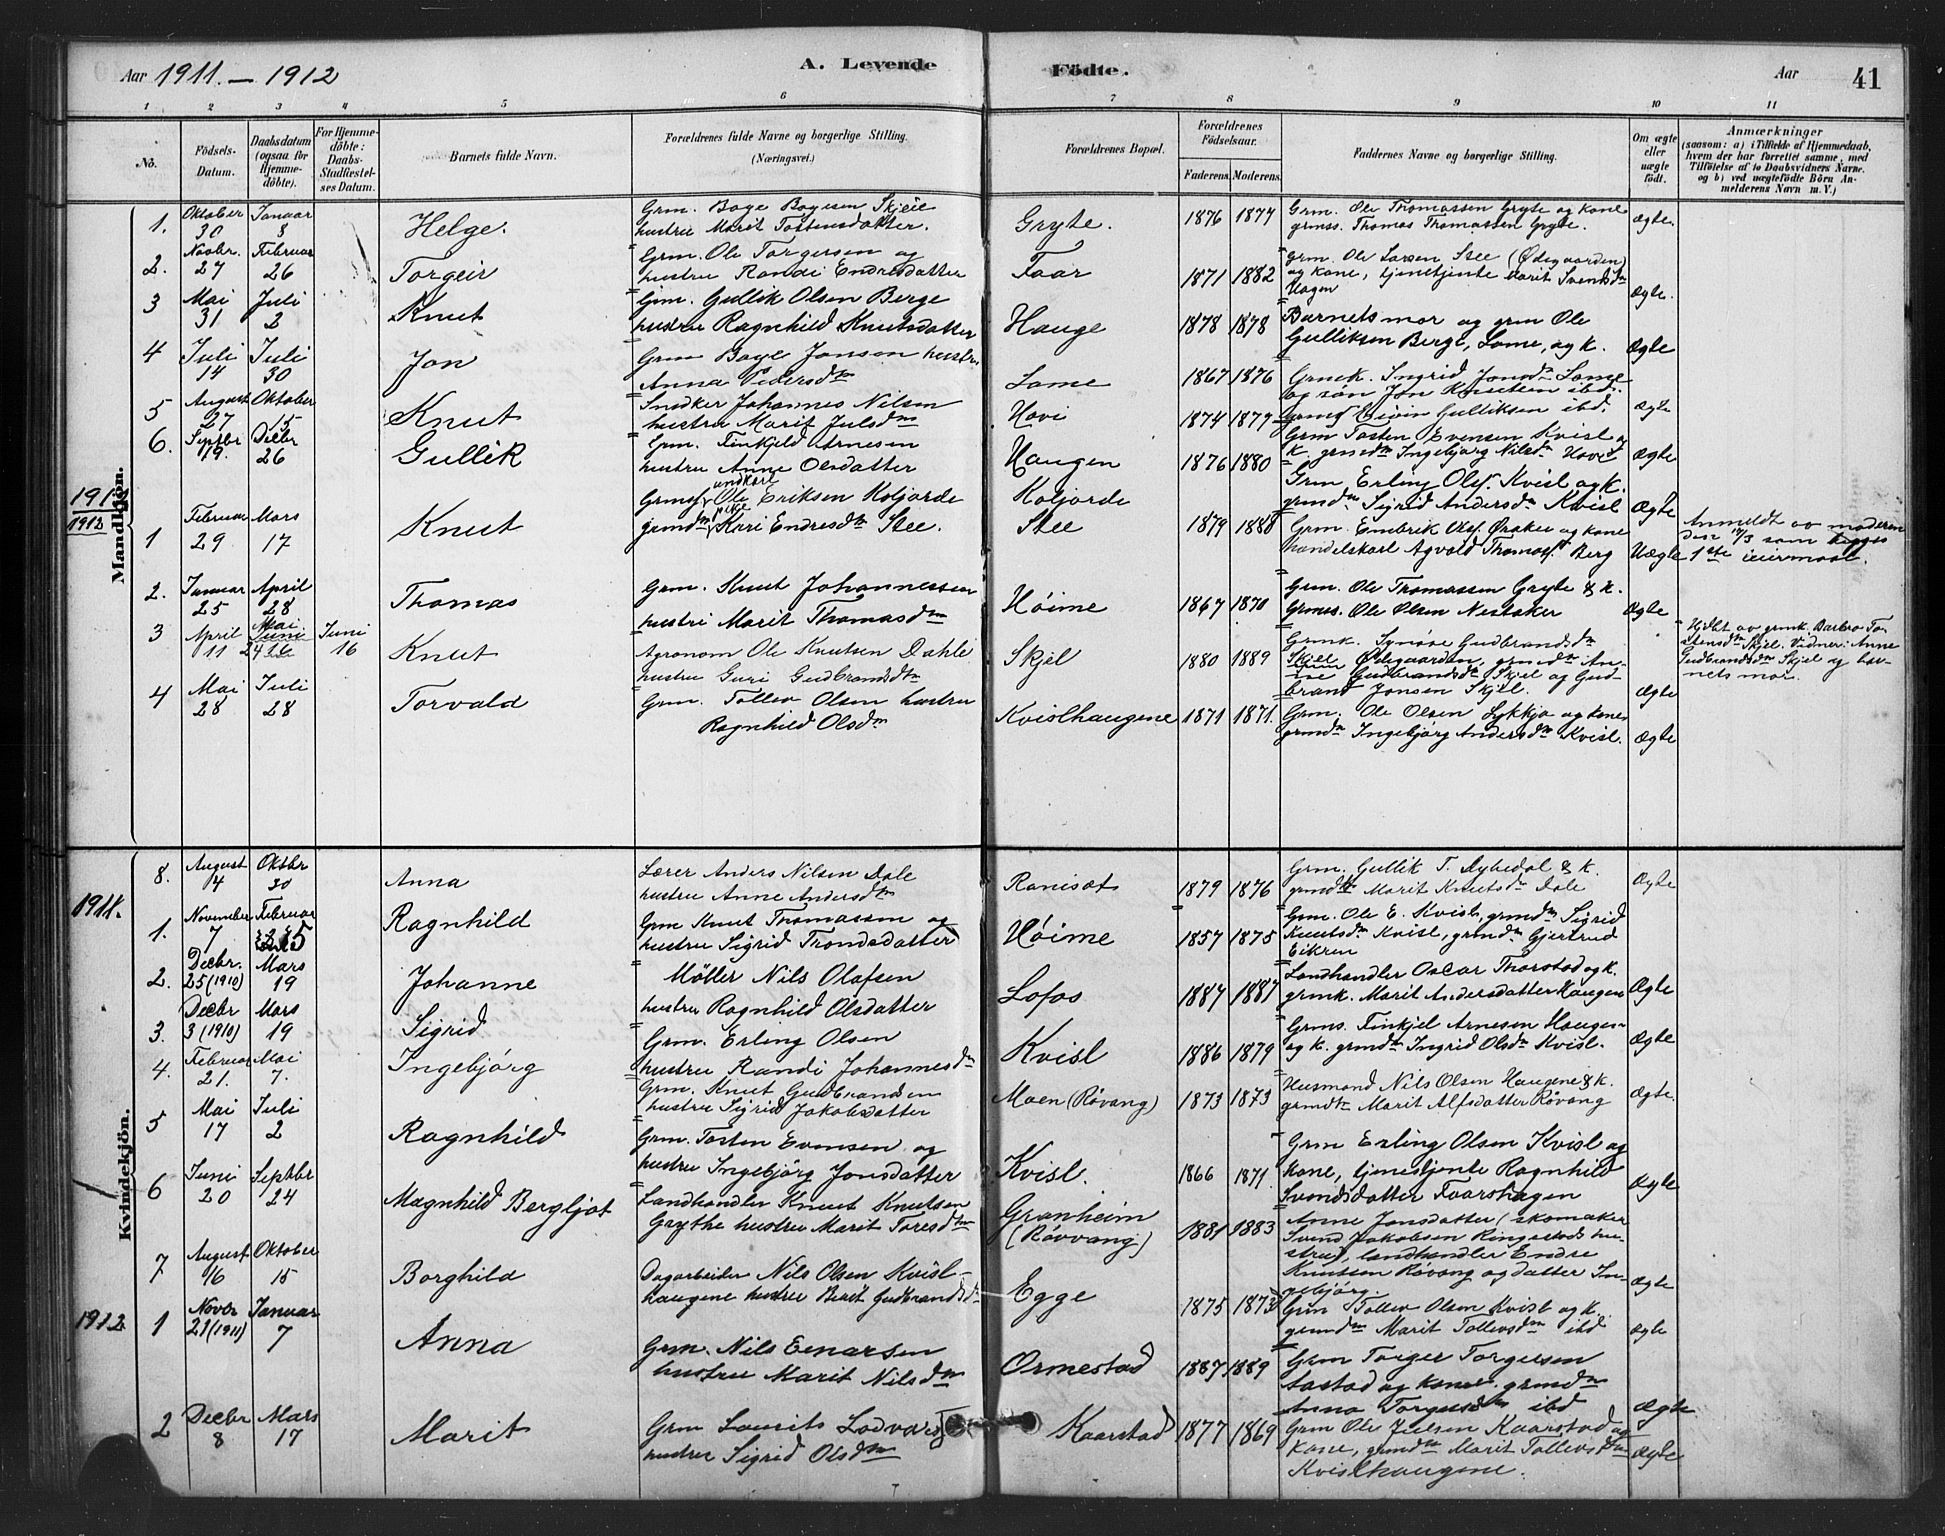 Aar 1911. — 1912
A. Levende Födte.
Aar 41
1 2 3 4 5 6 7 8 9 10 11
No.
Födsels-Datum.
Daabsdatum (ogsaa for Hjemme-döbte).
For Hjemme-döbte: Daabs-Stadfæstel-ses Datum.
Barnets fulde Navn.
Forældrenes fulde Navne og borgerlige Stilling. (Næringsvei.)
Forældrenes Bopæl.
Forældrenes Födselsaar.
Faderens. Moderens.
Faddernes Navne og borgerlige Stilling.
Om ægte eller uægte födt.
Anmærkninger
(saasom: a) i Tilfælde af Hjemmedaab, hvem der har forrettet samme, med Tilföielse af to Daabsvidners Navne. og b) ved uægtefödte Börn Anmelderens Navn m. V.)
Mandkjön.
1. Oktober 30 Januar 8 Helge. Grm. Boye Boyesen Skjeie
hustru Marit Tostensdatter. Gryte. 1876 1877 Grm. Ole Thomassen Gryte og kone
grmss. Thomas Thomassen Gryte. Ægte.
2. Novbr. 27 Februar 26 Torgeir Grm. Ole Torgersen og
hustru Randi Endresdatter Faar 1871 1882 grm. Ole Larsen Stee (Ødegaarden)
og kone, tjenestjente Marit Svensdtr
Hagen Ægte.
3 Mai 31 Juli 2 Knut Grm. Gullik Olsen Berge
hustru Ragnhild Knutsdatter Hauge 1878 1878 Barnets mor og grm Ole
Gulliksen Berge, Lome, og k. Ægte
4 Juli 14 Juli 30 Jon Grm Boye Jonsen hustru
Anna Pedersdtr Lome 1867 1876 Grmek. Ingrid Jonsdtr Lome
og søn Jon Knutsen ibd. Ægte
5 August 27 Oktober 15 Knut Snedker Johannes Nilsen
hustru Marit Julsdtr Hovi 1874 1877 Gulliksen ibd.
6. Septbr 19. Decbr 26 Gullik Grm. Finkjeld Arnesen
hustru Anne Olsdatter Haugen 1876 1880 Grm Tosten Evensen Kvisl og
k. grmdtr Ingebjørg Nilsdtr Hove Ægte
1912
1 Februar 29 Mars 17 Knut Grmsf ungkarl Ole Eriksen Koljorde
grmdtr pike Kari Endresdtr Stee. Koljorde
Stee 1879 1888 Grm Erling Olsf. Kvisl og k.
grmdtr Sigrid Andersdtr Kvisl Ægte
Grm. Embrik Olsf. Øraker og kone
handelskarl Agvald Thomasf Berg Uægte Anmeldt av moderen
den 17/3 som begges
1ste leiermaal.
2. Januar 25 April 28 Thomas Grm. Knut Johannessen
hustru Marit Thomasdtr Høime 1867 1870 Grm. Ole Thomassen Gryte & k.
Grmss. Ole Olsen Nestaker Ægte
3 April 11 Mai 24 Juni 16 Knut Agronom Ole Knutsen Dahle
hustru Guri Gudbrandsdtr Skjel 1880 1889 Grmk. Synøve Gudbrandsdtr
Ødegaarden, grmdtr An-
ne Gudbrandsdtr Skjel og Gud-
brand Jonsen Skjel. Ægte Hjdbt av grmk. Barbro To-
stensdtr Skjel. Vidner: Anne
Gudbrandsdtr Skjel og bar-
nets mor.
4 Mai 28 Juli 28 Torvald Grm. Tollev Olsen hustru
Ragnhild Olsdtr Kvislhaugene 1871 1871. Grm. Ole Olsen Lykkja og kone
grmdtr Ingebjørg Andersdtr Kvisl. Ægte
Kvindekjön.
1911.
8. August 4 Oktbr 30 Anna Lærer Anders Nilsen Dale
hustru Anne Andersdtr Ranisat 1879 1876 Grm. Gullik T. Dybedal & k.
grmdtr Marit Knutsdtr Dale Ægte
1. November 7 Februar 5 Ragnhild Grm Knut Thomassen og
hustru Sigrid Trondsdatter Høime 1857 1875 Grm. Ole E. Kvisl, grmdtr Sigrid
Knutsdtr Kvisl, grmdtr Gjertrud
Eikren
2. Decbr. 25 (1910) Mars 19 Johanne Møller Nils Olafsen
hustru Ragnhild Olsdatter Lofos 1887 1887 Landhandler Oscar Thorstad og k.
grmk. Marit Andersdatter Haugen Ægte
3. Decbr 3 (1910) Mars 19 Sigrid Grm. Erling Olsen
hustru Randi Johannesdtr Kvisl 1886 1879 Grms. Finkjel Arnesen Hauges-
og k. grmdtr Ingrid Olsdtr Kvisl. Ægte
4. Februar 21. Mai 7. Ingebjørg Grm. Knut Gudbrandsen
hustru Sigrid Jakobsdatter Moen (Røvang) 1873 1873 Husmand Nils Olsen Haugene & k.
grmdtr Marit Alfsdatter Røvang Ægte.
5 Mai 17 Juli 2 Ragnhild Grm. Tosten Evensen og
hustru Ingebjörg Jonsdatter Kvisl. 1866 1871. Grm Erling Olsen Kvisl og
kone, tjenestjente Ragnhild
Svendsdatter Faarshagen Ægte
6 Juni 20 Septbr 24 Magnhild Bergljot Landhandler Knut Knutsen
Grythe hustru Marit Toresdtr Granheim
(Røvvang) 1881 1883 Anne Jonsdatter (skomaker
Svend Jakobsen Ringestads hu-
stru), landhandler Endre
Knutson Røvang og datter In-
gebjörg. Ægte
7 August 16 Oktober 15 Borghild Dagarbeider Nils Olsen Kvisl-
haugene hustru Berit Gudbrandsdtr Egge 1875 1873 Grm Tollev Olsen Kvisl og k.
grmdtr Marit Tollevsdtr ibd Ægte
1912
1 Novbr 21 (1911) Januar 7 Anna Grm. Nils Einarsen
hustru Marit Nilsdtr Ormestad 1887 1889 Grm Torger Torgersen
Aastad og kone. grmdtr
Anna Torgersdtr ibd Ægte
2 Decbr 8 Mars 17 Marit Grm Laurits Ladvars
hustru Sigrid Olsdtr Kaarstad 1877 1869 Grm Ole Julsen Kaarstad og
kone, grmdtr Marit Tollevsdtr
Kvislhaugene. Ægte